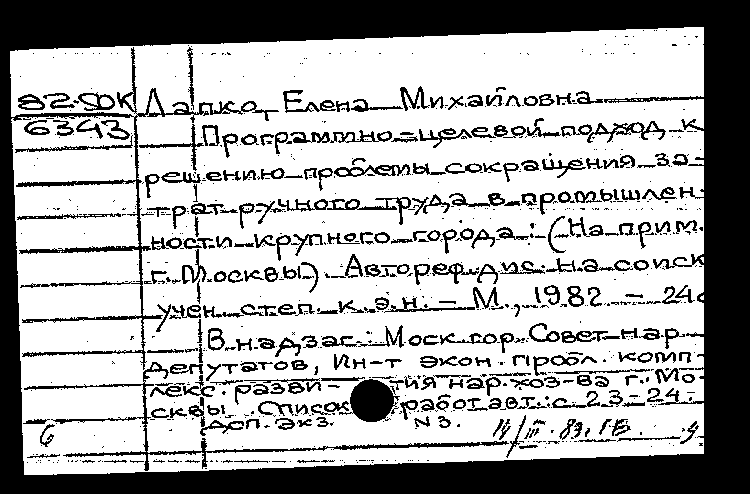 82-SOK Лапко, Елена Михайловна
6343 Программно-целевой подход к
решению проблемы сокращения за-
трат ручного труда в промышлен-
ности крупного города: (На прим.
г. Москвы). Автореф. дис. на соиск
учен. степ. к.э.н. - М., 1982 - 24с
В надзаг.: Моск. гор. Совет нар
депутатов, Ин-т экон. пробл. комп-
лекс. разви- тия нар. хоз-ва г. Мо-
сквы. Список работ авт.: с. 23-24.-
Доп. экз. N3.
6